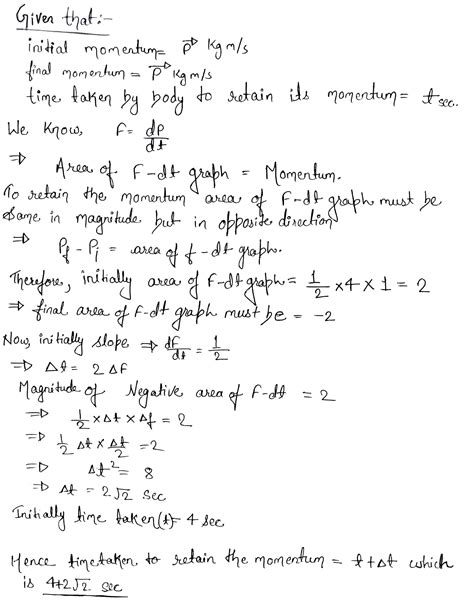 Given that:-
initial momentum= P⃗ Kg m/s
final momentum = P⃗ Kg m/s
time taken by body to retain its momentum= t sec.
We Know, F= dP/dt
⇒ Area of F-dt graph = Momentum.
To retain the momentum area of F-dt graph must be
same in magnitude but in opposite direction
⇒ Pf - Pi = area of f-dt graph.
Therefore, initially area of F-dt graph= 1/2 ×4×1 = 2
⇒ final area of F-dt graph must be = -2
Now, initially slope ⇒ dF/dt = 1/2
⇒ Δt= 2 ΔF
Magnitude of Negative area of F-dt = 2
⇒ 1/2 ×Δt×Δf = 2
⇒ 1/2 Δt× Δt/2 =2
⇒ Δt² = 8
⇒ Δt = 2√2 sec
Initially time taken(t)= 4 sec
Hence time taken to retain the momentum = t+Δt which
is 4+2√2 sec